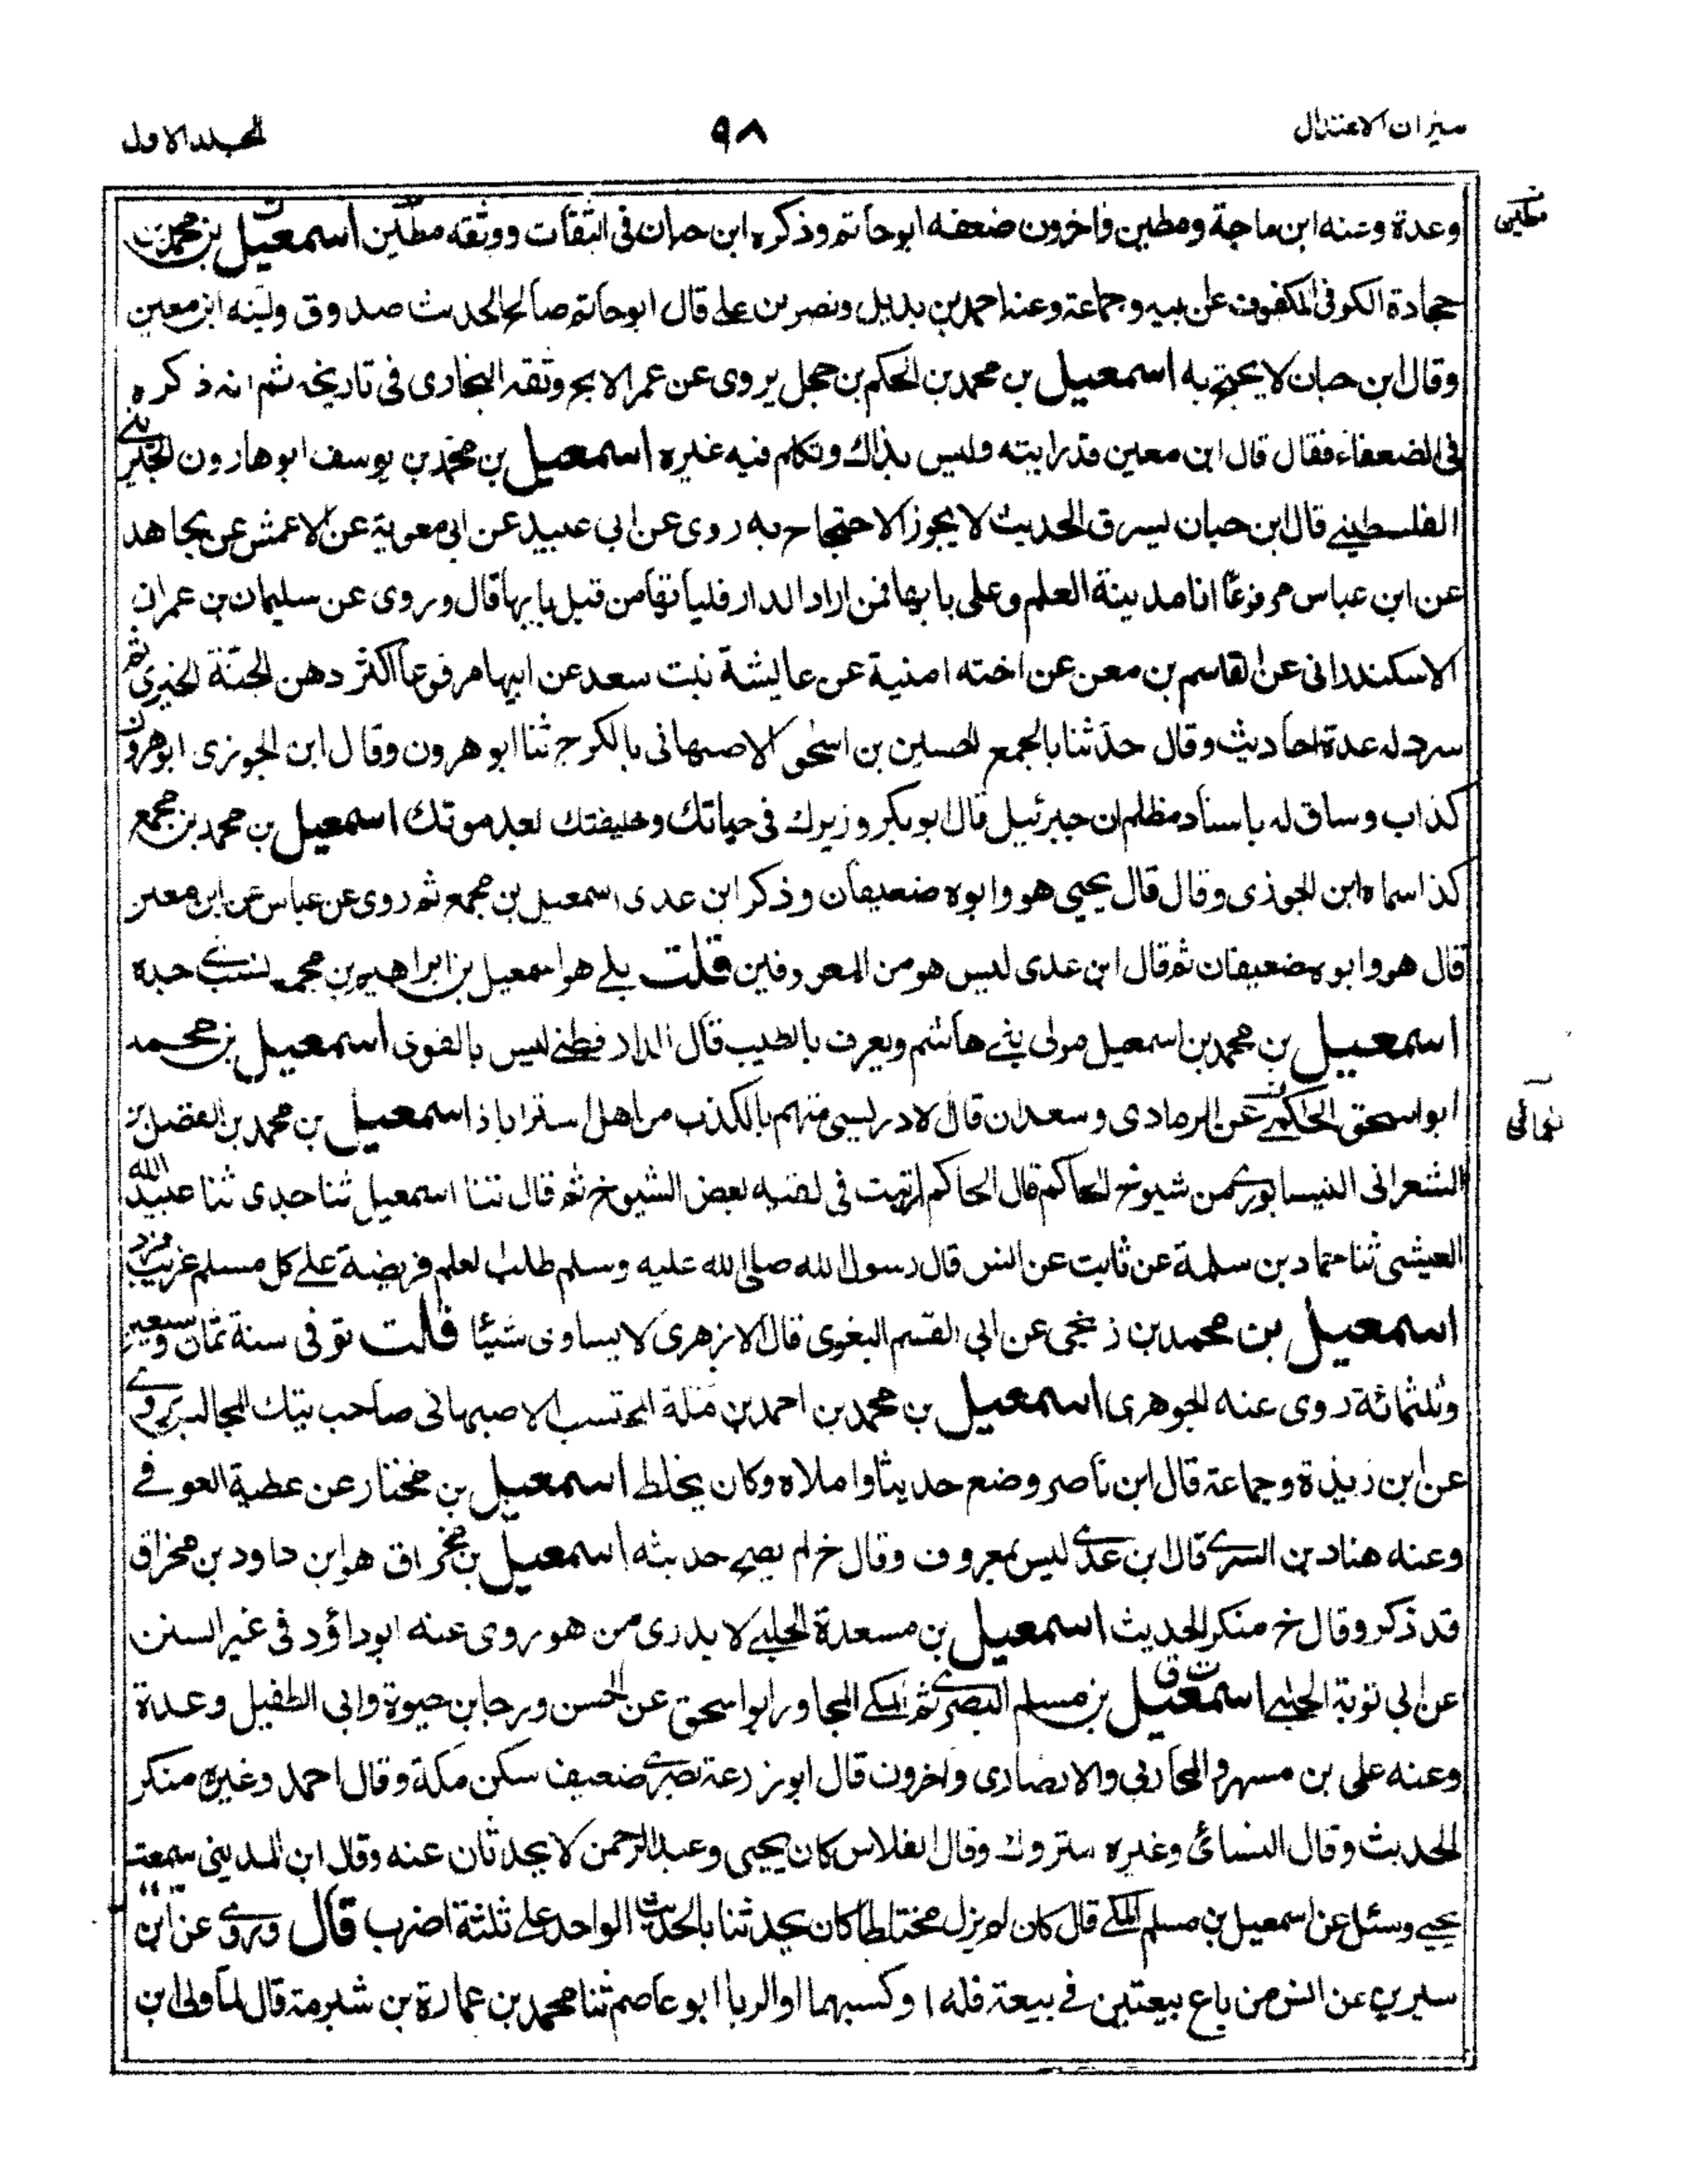 ميزان الاعتدال
٩٨
المجلد الاول
وعدة وعنه ابن ماجة ومطين واخرون ضعفه ابوحاتم وذكره ابن حبان فى الثقات ووثقه مطين اسمعيل بن محمد بن
جحادة الكوفى المكفوف عن ابيه وجماعة وعنه احمد بن بديل ونصر بن على قال ابوحاتم صالح الحديث صدوق ولينه ابن معين
وقال ابن حبان لا يحتج به اسمعيل بن محمد بن الحكم بن جحل يروى عن عمر الابح وثقه البخارى فى تاريخه ثم انه ذكره
فى الضعفاء فقال قال ابن معين قد رايته وليس بذاك وتكلم فيه غيره اسمعيل بن محمد بن يوسف ابوهارون الجبرينى
الفلسطينے قال ابن حبان يسرق الحديث لا يجوز الاحتجاح به روى عن ابى عبيد عن ابى معوية عن الاعمش عن مجاهد
عن ابن عباس مرفوعًا انا مدينة العلم وعلى بابها فمن اراد الدار فلياتها من قبل بابها قال وروى عن سليمان بن عمران
الاسكندرانى عن القاسم بن معن عن اخته امنية عن عايشة بنت سعد عن ابيها مرفوعا اكثر دهن الجنة الخيرى ثم
سرد له عدة احاديث وقال حدثنا بالجمع الحسين بن اسحٰق الاصبهانى بالكرج ثنا ابو هرون وقال ابن الجوزى ابوهرون
كذاب وساق له باسناد مظلم ان جبرئيل قال ابوبكر وزيرك فى حياتك وخليفتك بعد موتك اسمعيل بن محمد بن مجمع
كذا سماه ابن الجوزى وقال قال يحيى هو وابوه ضعيفان وذكر ابن عدى اسمعيل بن مجمع ثم روى عن عباس عن ابن معين
قال هو وابوه ضعيفان ثم قال ابن عدى ليس هو من المعروفين قلت بلے هو اسمعيل بن ابراهيم بن مجمع نسب جده
اسمعيل بن محمد بن اسمعيل مولى بنے هاشم ويعرف بالطيب قال الدارقطنے ليس بالقوى اسمعيل بن محمد
ابو اسحق الحكمے عن الرمادى وسعدان قال الادريسى متهم بالكذب من اهل استراباذ اسمعيل بن محمد بن الفضل بن
الشعرانى النيسابورى من شيوخ الحاكم قال الحاكم ارتبت فى لقيه بعض الشيوخ ثم قال ثنا اسمعيل ثنا جدى ثنا عبيد الله
العيشى ثنا حماد بن سلمة عن ثابت عن انس قال رسول الله صلى الله عليه وسلم طلب العلم فريضة علے كل مسلم غريب فرد
اسمعيل بن محمد بن زنجى عن ابى القسم البغوى قال الازهرى لا يساوى شيئًا قلت توفى سنة ثمان وسبعين
وثلثمائة روى عنه الجوهرى اسمعيل بن محمد بن احمد بن ملة المحتسب الاصبهانى صاحب تيك المجالس يروے
عن ابن زيذة وجماعة قال ابن ناصر وضع حديثا واملاه وكان يخلط اسمعيل بن مختار عن عطية العوفے
وعنه هناد بن السرى قال ابن عدى ليس بمعروف وقال خ لم يصح حديثه اسمعيل بن مخراق هو ابن داود بن مخراق
قد ذكر وقال خ منكر الحديث اسمعيل بن مسعدة الحلبے لا يدرى من هو روى عنه ابوداؤد فى غير السنن
عن ابى توبة الحلبے اسمعيل بن مسلم البصرى ثم المكے المجاور ابو اسحق عن الحسن ورجا بن حيوة وابى الطفيل وعدة
وعنه على بن مسهر والمحاربى والانصارى واخرون قال ابوزرعة بصرى ضعيف سكن مكة وقال احمد وغيره منكر
الحديث وقال النسائى وغيره متروك وقال الفلاس كان يحيى وعبد الرحمن لا يحدثان عنه وقال ابن المدينى سمعت
يحيے وسئل عن اسمعيل بن مسلم المكے قال كان لم يزل مختلطا كان يحدثنا بالحديث الواحد على ثلثة اضرب قال وروى عن ابن
سيرين عن انس من باع بيعتين فے بيعة فله اوكسهما او الربا ابو عاصم ثنا محمد بن عمارة بن شبرمة قال لما ولى ابن